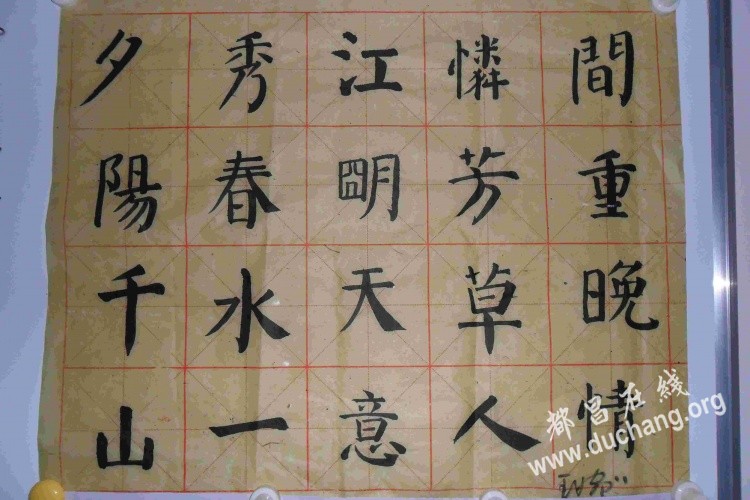 夕陽千山
秀春水一
江朙天意
憐芳草人
間重晚情
都昌在线
www.duchang.org